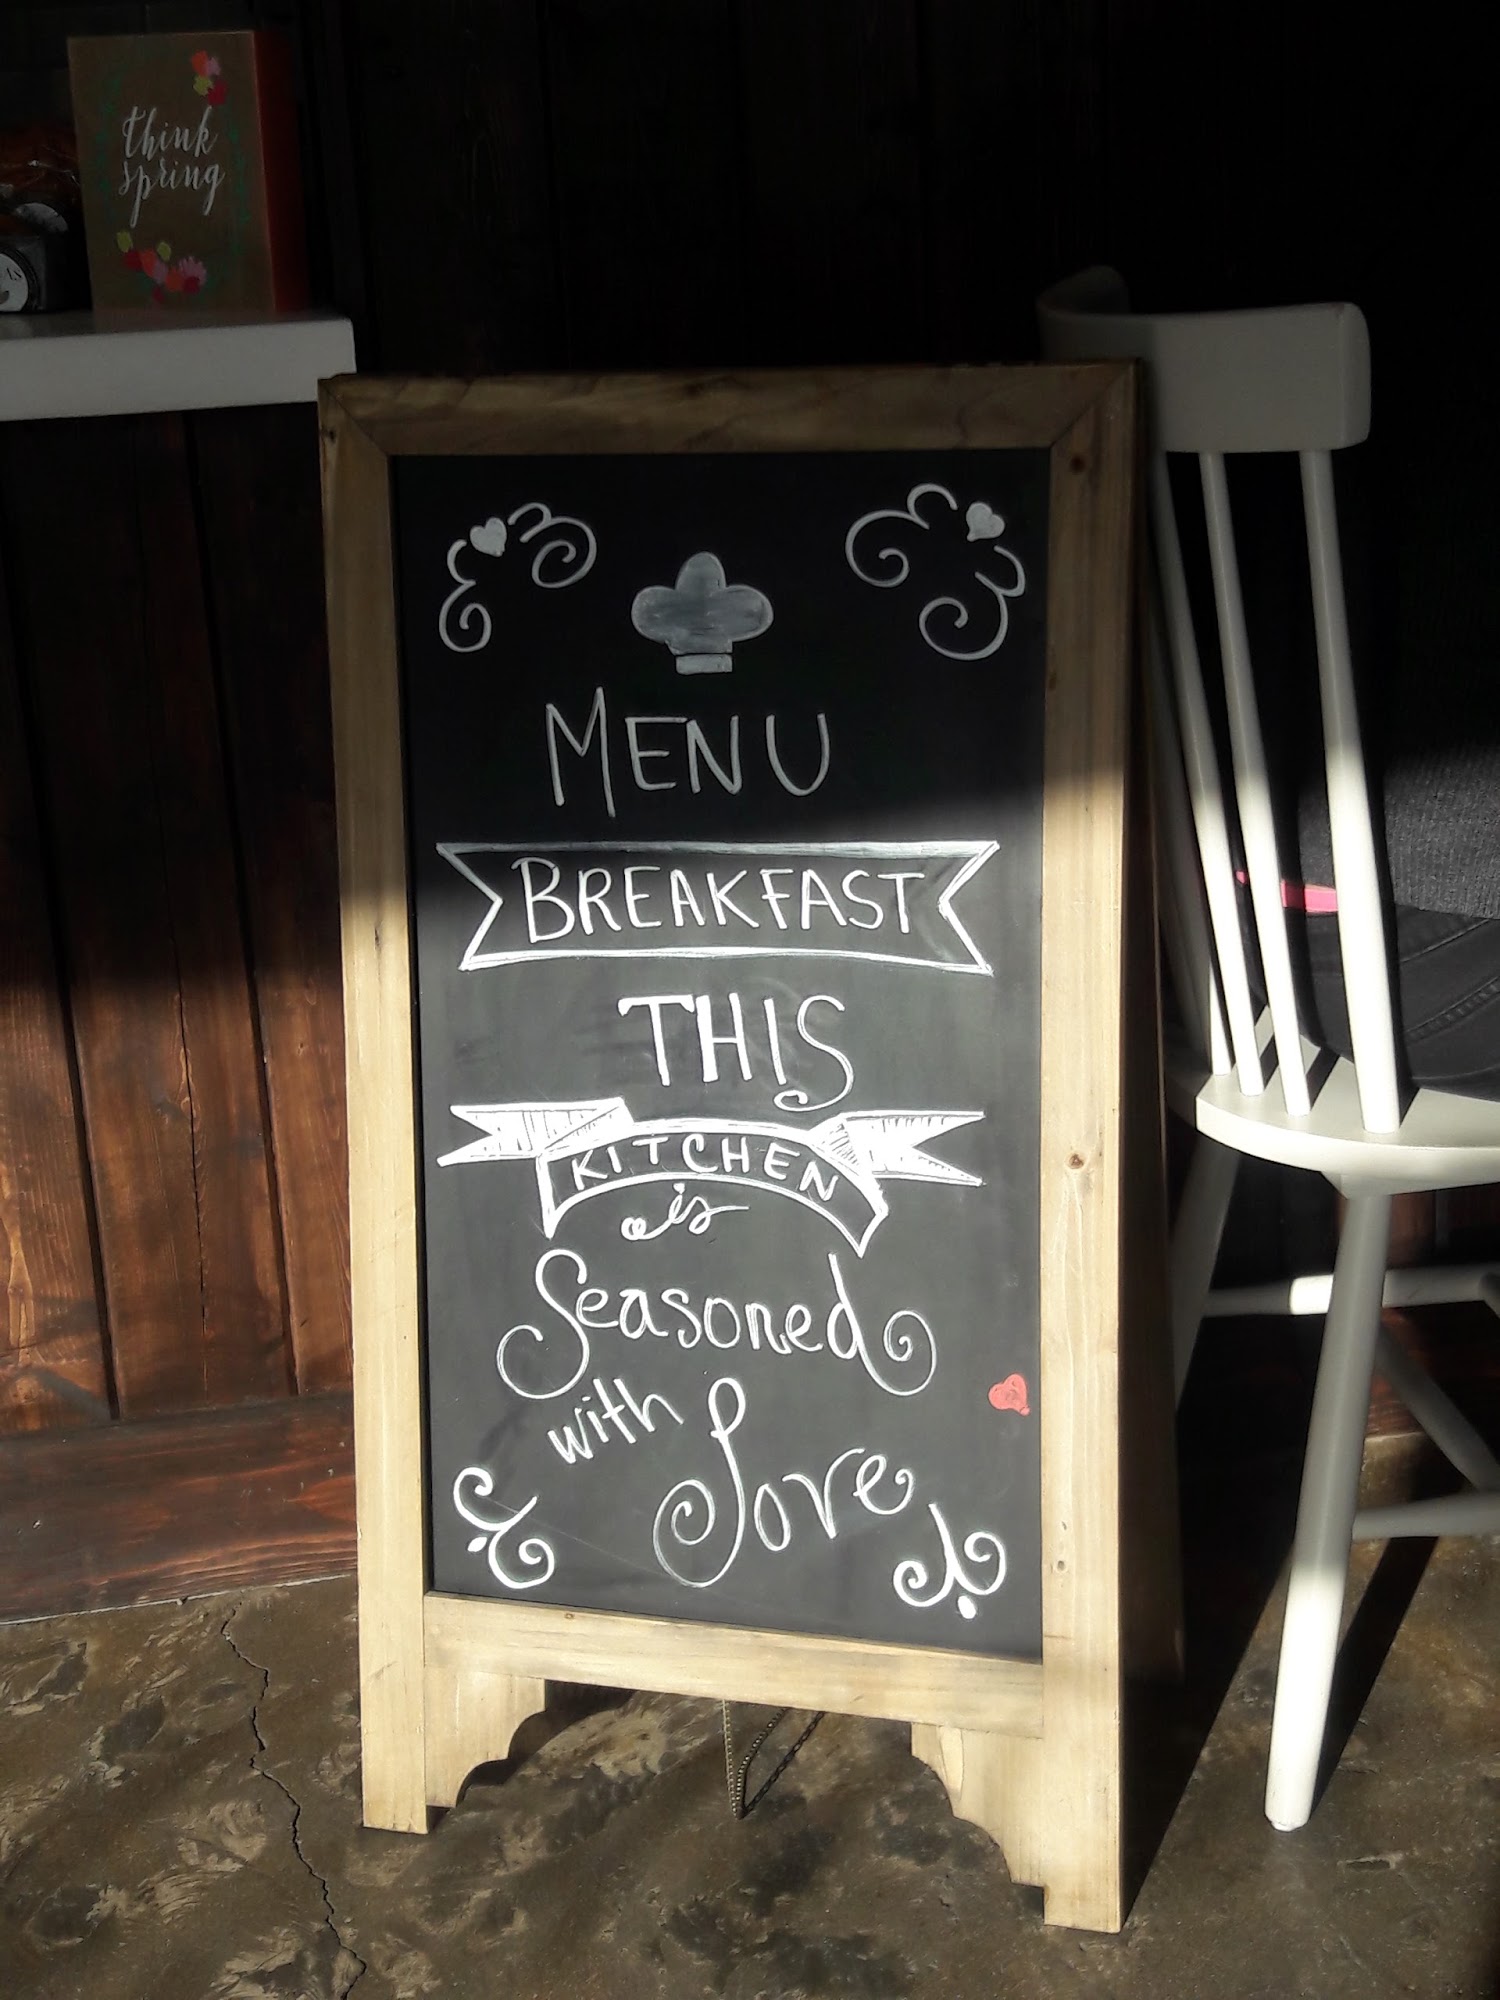 think
spring
MENU
BREAKFAST
THIS
KITCHEN
is
Seasoned
with Love